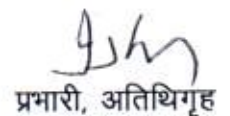 प्रभारी, अतिथिगृह